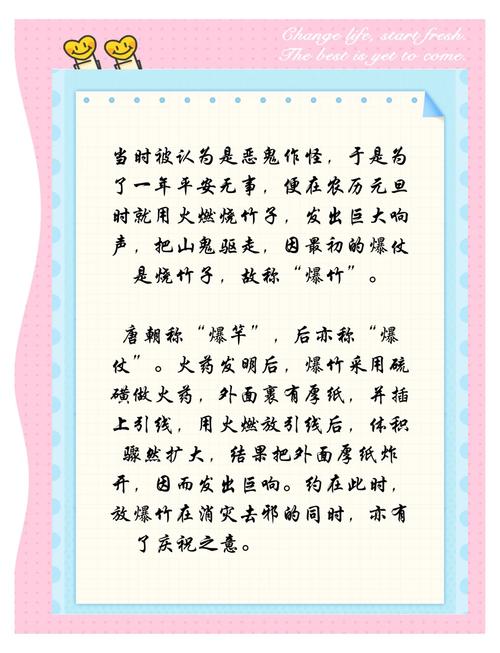 Change life, start fresh.
The best is yet to come.
当时被认为是恶鬼作怪，于是为
了一年平安无事，便在农历元旦
时就用火燃烧竹子，发出巨大响
声，把山鬼驱走，因最初的爆仗
是烧竹子，故称“爆竹”。
唐朝称“爆竿”，后亦称“爆
仗”。火药发明后，爆竹采用硫
磺做火药，外面裹有厚纸，并插
上引线，用火燃放引线后，体积
骤然扩大，结果把外面厚纸炸
开，因而发出巨响。约在此时，
放爆竹在消灾去邪的同时，亦有
了庆祝之意。